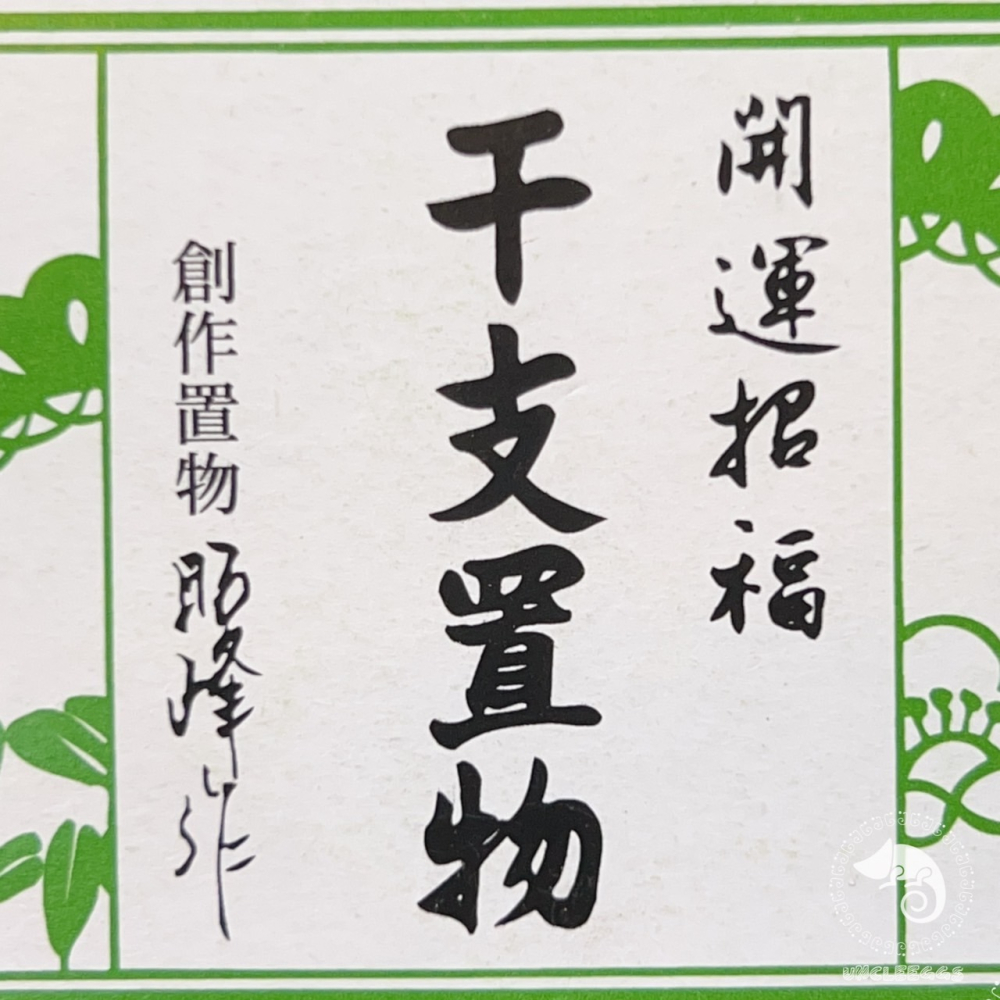 開運招福
干支置物
創作置物
峰作
UNCLEEGGS